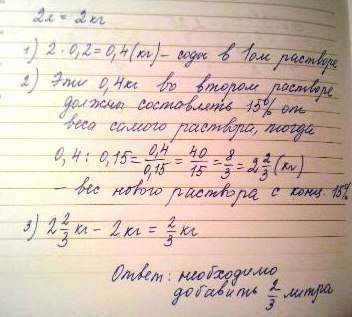 2л = 2кг
1) 2 · 0,2 = 0,4 (кг) – соды в 1ом растворе
2) Эти 0,4кг во втором растворе
должны составлять 15% от
веса самого раствора, тогда
0,4 : 0,15 = 0,4/0,15 = 40/15 = 8/3 = 2 2/3 (кг)
– вес нового раствора с конц. 15%
3) 2 2/3 кг – 2 кг = 2/3 кг
Ответ: необходимо
добавить 2/3 литра